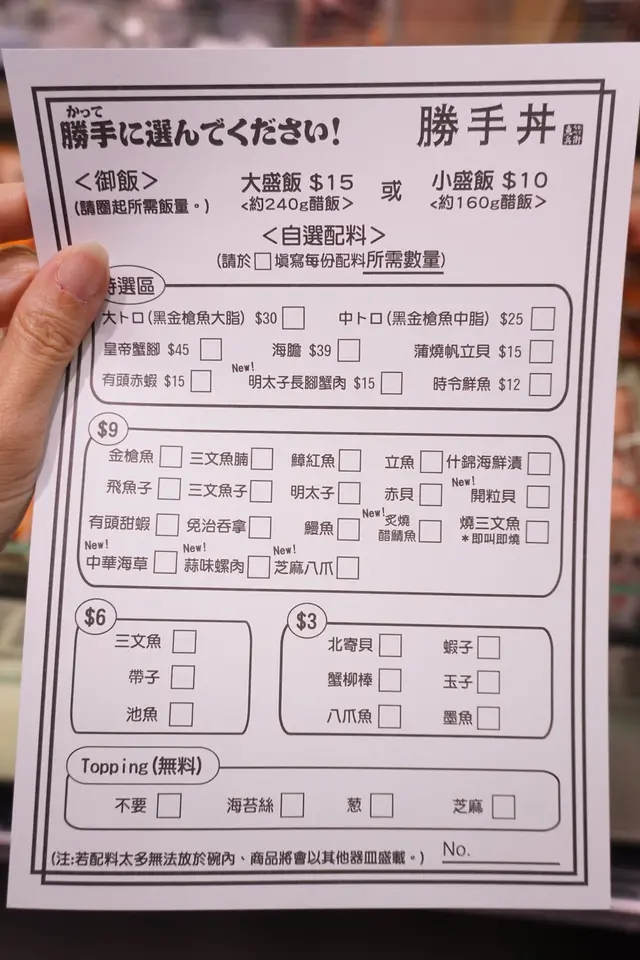 かって
勝手に選んでください! 勝手丼
<御飯> 大盛飯 $15 或 小盛飯 $10
(請圈起所需飯量。) <約240g醋飯> <約160g醋飯>
<自選配料>
(請於□填寫每份配料所需數量)
特選區
大トロ(黑金槍魚大脂) $30 中トロ(黑金槍魚中脂) $25
皇帝蟹腳 $45 海膽 $39 蒲燒帆立貝 $15
有頭赤蝦 $15 New! 明太子長腳蟹肉 $15 時令鮮魚 $12
$9
金槍魚 三文魚腩 鱆紅魚 立魚 什錦海鮮漬
飛魚子 三文魚子 明太子 赤貝 New! 開粒貝
有頭甜蝦 免治吞拿 鰻魚 New! 炙燒醋鯖魚 燒三文魚
*即叫即燒
New! 中華海草 New! 蒜味螺肉 New! 芝麻八爪
$6 $3
三文魚 北寄貝 蝦子
帶子 蟹柳棒 玉子
池魚 八爪魚 墨魚
Topping(無料)
不要 海苔絲 葱 芝麻
(注:若配料太多無法放於碗內、商品將會以其他器皿盛載。) No.